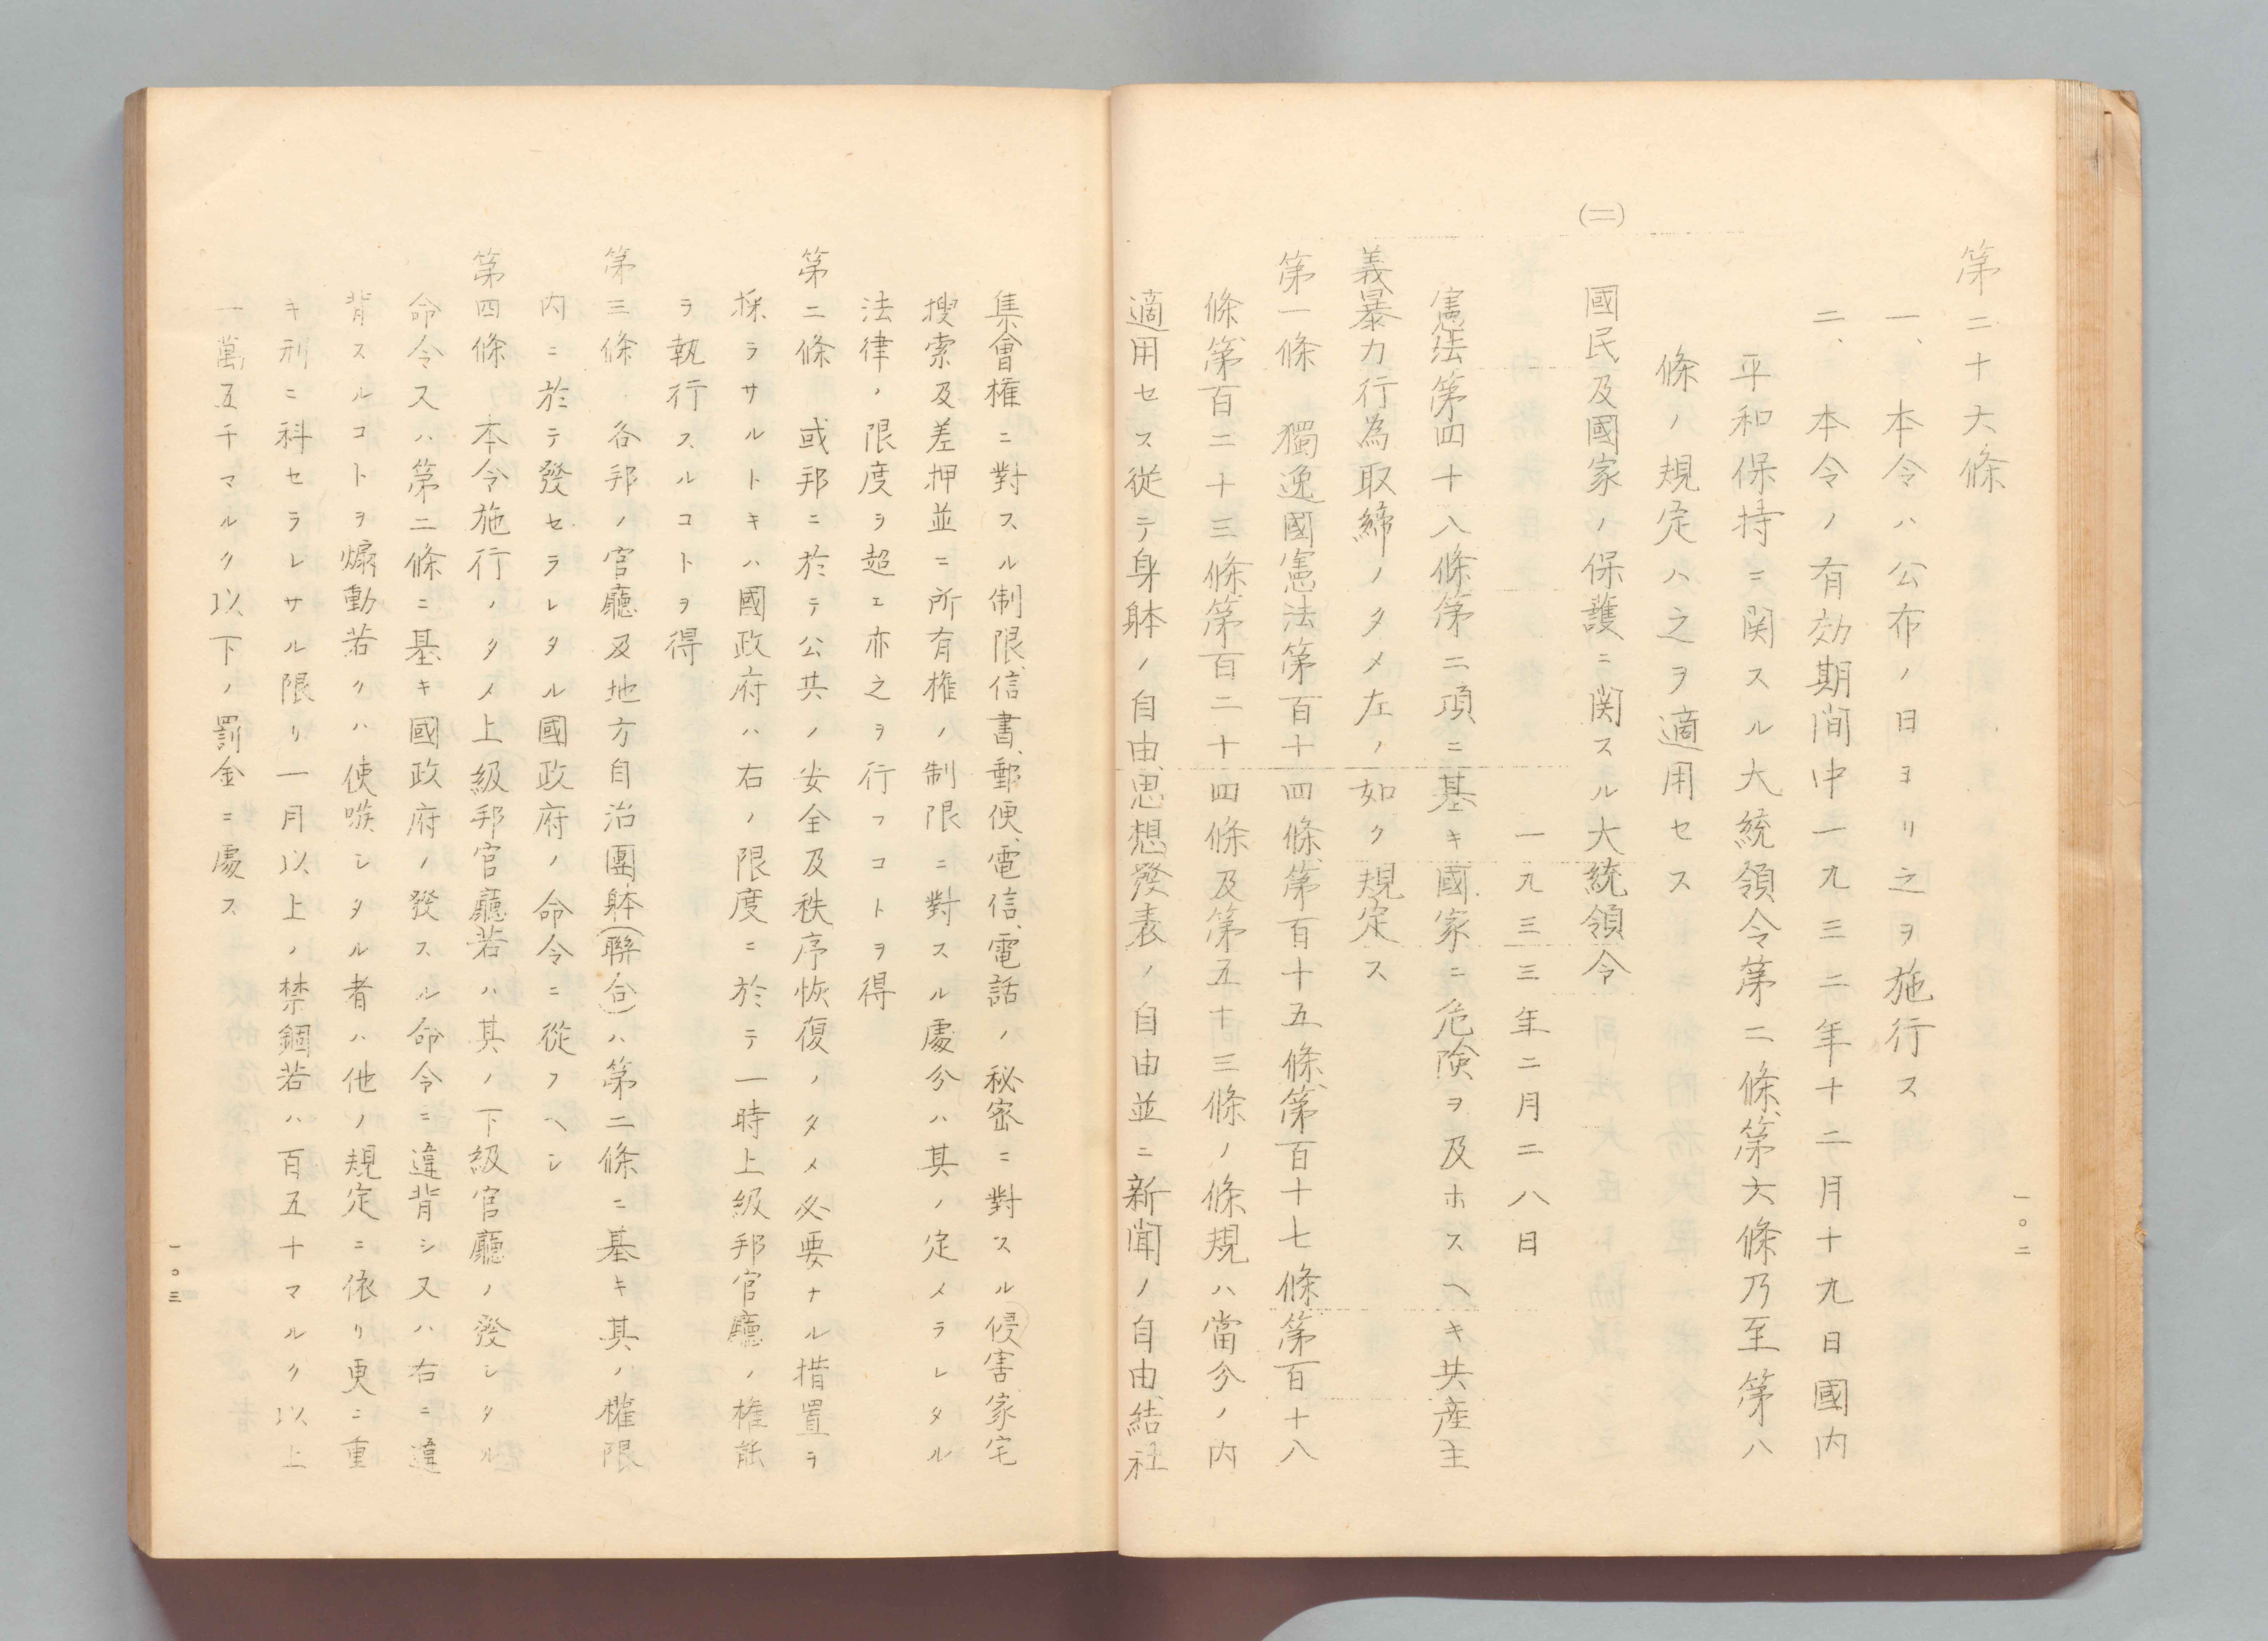 第二十六條
一、本令ハ公布ノ日ヨリ之ヲ施行ス
二、本令ノ有効期間中一九三二年十二月十九日國内
平和保持ニ関スル大統領令第二條、第六條乃至第八
條ノ規定ハ之ヲ適用セス
(二)
國民及國家ノ保護ニ関スル大統領令
一九三三年二月二八日
憲法第四十八條第二項ニ基キ國家ニ危険ヲ及ホスヘキ共産主
義暴力行為取締ノタメ左ノ如ク規定ス
第一條 獨逸國憲法第百十四條、第百十五條、第百十七條、第百十八
條、第百二十三條、第百二十四條及第百五十三條ノ條規ハ當分ノ内
適用セス從テ身躰ノ自由、思想發表ノ自由並ニ新聞ノ自由、結社
一〇二
集會権ニ對スル制限、信書、郵便、電信、電話ノ秘密ニ對スル侵害家宅
搜索及差押並ニ所有権ノ制限ニ對スル處分ハ其ノ定メラレタル
法律ノ限度ヲ超エ亦之ヲ行フコトヲ得
第二條 或邦ニ於テ公共ノ安全及秩序恢復ノタメ必要ナル措置ヲ
採ラサルトキハ國政府ハ右ノ限度ニ於テ一時上級邦官廳ノ権能
ヲ執行スルコトヲ得
第三條 各邦ノ官廳及地方自治團躰(聯合)ハ第二條ニ基キ其ノ権限
内ニ於テ發セラレタル國政府ノ命令ニ從フヘシ
第四條 本令施行ノタメ上級邦官廳若ハ其ノ下級官廳ノ發シタル
命令又ハ第二條ニ基キ國政府ノ發スル命令ニ違背シ又ハ右ニ違
背スルコトヲ煽動若クハ使嗾シタル者ハ他ノ規定ニ依リ更ニ重
キ刑ニ科セラレサル限リ一月以上ノ禁錮若ハ百五十マルク以上
一萬五千マルク以下ノ罰金ニ處ス
一〇三